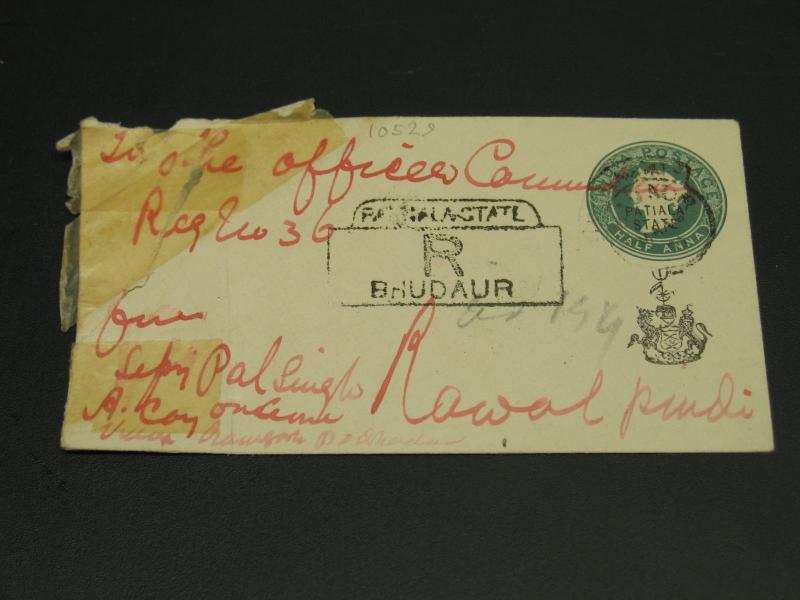 10529
To The officer Comm
Reg No 36
PATIALA-STATE
R
BHUDAUR
INDIA POSTAGE
PATIALA
STATE
HALF ANNA
from
Sepy Pal Singh
A. Coy on leave
Rawal pindi